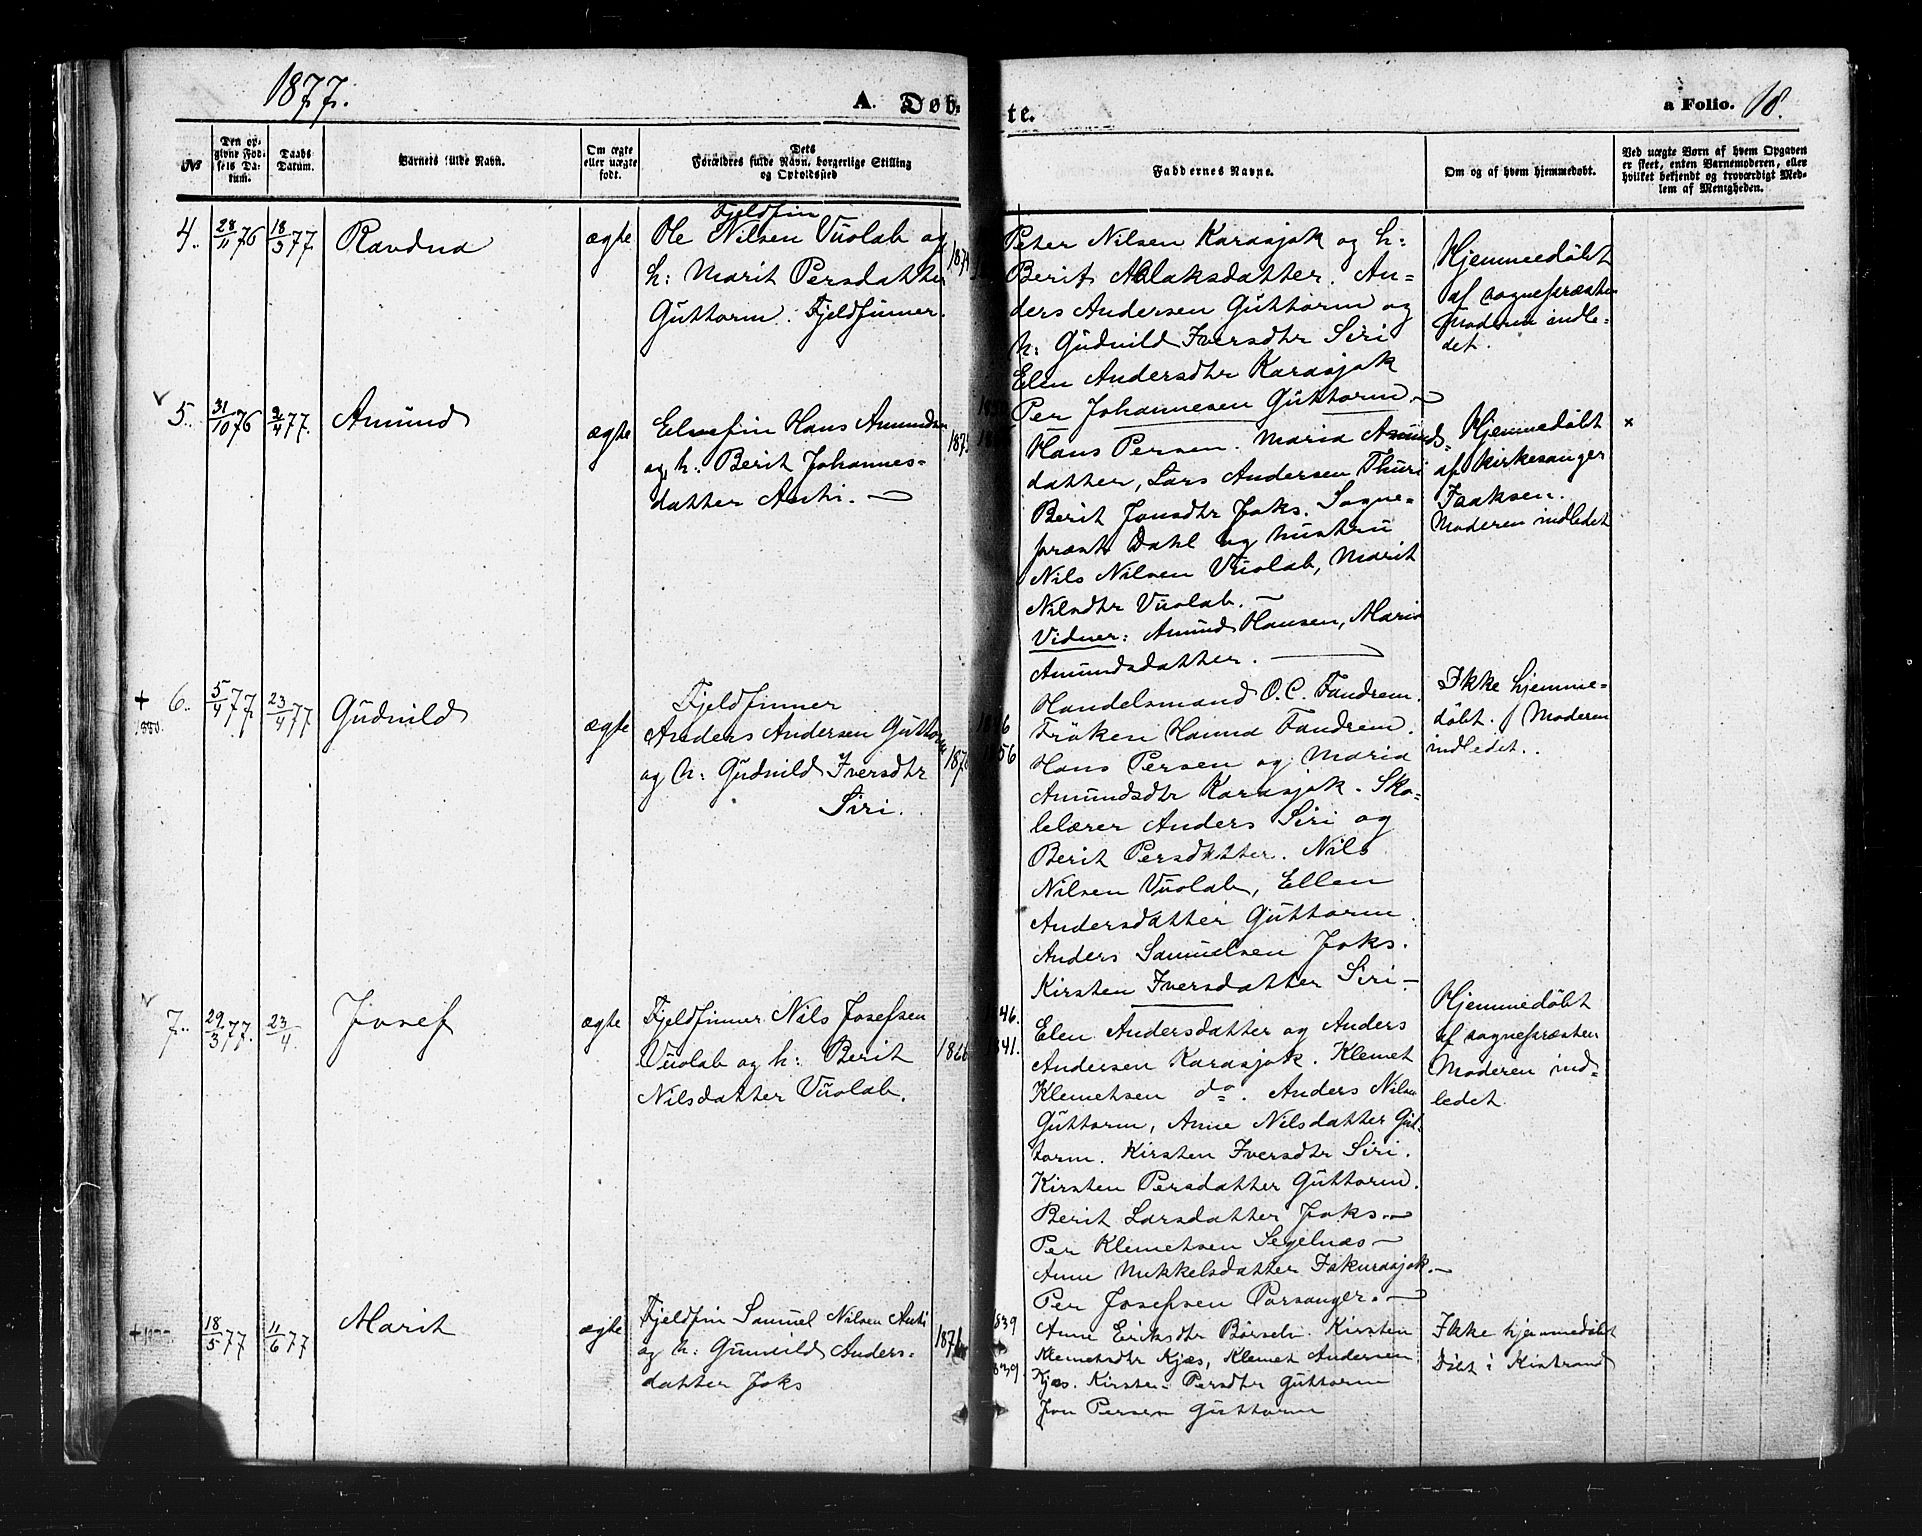 1877.
A. Døb-
te.
a Folio. 18.
No
Den op-
givne Fød-
sels Da-
tum.
Daabs
Datum.
Barnets fulde Navn.
Om ægte
eller uægte
født.
Dets
Forældres fulde Navn, borgerlige Stilling
og Opholdssted
Faddernes Navne.
Om og af hvem hjemmedøbt.
Ved uægte Børn af hvem Opgaven
er skeet, enten Barnemoderen, eller
hvilket bekjendt og troværdigt Med-
lem af Menigheden.
4.
28/11 76
18/3 77.
Ravdna
ægte
Fjeldfin
Ole Nilsen Vuolab og
h: Marit Persdatter
Guttorm. Fjeldfinner.
Peter Nilsen Karasjok og h:
Berit Aslaksdatter. An-
ders Andersen Guttorm og
h: Gudnild Iversdtr Siri
Elen Andersdtr Karasjok
Per Johannesen Guttorm.
Hjemmedøbt
af sognepræsten
Moderen indle-
det.
5.
31/10 76
2/4 77.
Amund
ægte
Elvefin Hans Amundsen
og h: Berit Johannes-
datter Anti.
Hans Persen. Maria Amunds-
datter, Lars Andersen Thuri
Berit Jonsdtr Joks. Sogne-
præst Dahl og hustru
Nils Nilsen Vuolab, Marit
Nilsdtr Vuolab.
Vidner: Amund Hansen, Maria
Amundsdatter.
Hjemmedøbt
af Kirkesanger
Isaksen.
Moderen indledet
×
+
1880.
6.
5/4 77.
23/4 77
Gudnild
ægte
Fjeldfinner
Anders Andersen Guttorm
og h: Gudnild Iversdtr
Siri.
Handelsmand O. C. Fandrem.
Frøken Hanna Fandrem.
Hans Persen og Maria
Amundsdtr Karasjok. Sko-
lelærer Anders Siri og
Berit Persdatter. Nils
Nilsen Vuolab, Ellen
Andersdatter Guttorm.
Anders Samuelsen Joks.
Kirsten Iversdatter Siri
Ikke hjemme-
døbt. Moderen
indledet.
7.
29/3 77.
23/4
Josef
ægte
Fjeldfinner Nils Josefsen
Vuolab og h: Berit
Nilsdatter Vuolab.
1866
46.
841.
Elen Andersdatter og Anders
Andersen Karasjok. Klemet
Klemetsen do. Anders Nilsen
Guttorm, Anne Nilsdatter Gut-
torm. Kirsten Iversdtr Siri.
Kirsten Persdatter Guttorm.
Berit Larsdatter Joks
Per Klemetsen Segelnæs
Anne Mikkelsdatter Iskurasjok.
Per Josefsen Porsanger.
Hjemmedøbt
af sognepræsten
Moderen ind-
ledet
18/5 77
11/6 77
Marit
ægte
Fjeldfin Samuel Nilsen Anti
og h: Gunnild Anders-
datter Joks
839
839
Anne Eriksdtr Børselv. Kirsten
Klemetsdtr Kjæs, Klemet Andersen
Kjæs. Kirsten Persdtr Guttorm
Jon Persen Guttorm
Ikke hjemmedøbt
Døbt i Kistrand